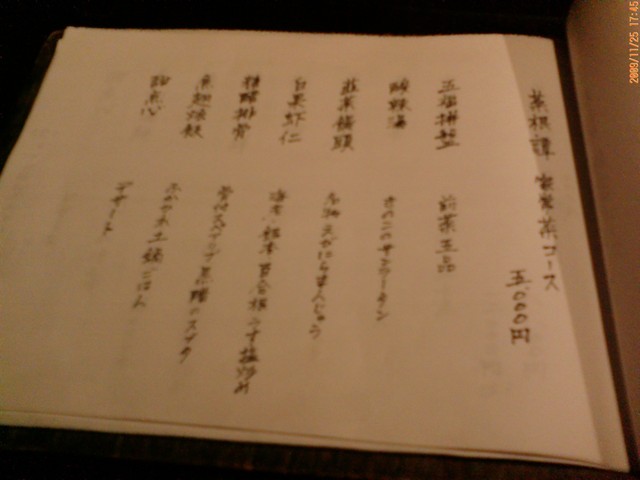 菜根譚 家常菜コース
五、000円
五福拼盤 前菜五品
酸辣湯 きのこのサンラータン
韮菜饅頭 名物 えびにらまんじゅう
白果虾仁 海老、銀杏、百合根 うす塩炒め
糖醋排骨 骨付スペアリブ 黒醋のスブタ
土鍋ごはん
甜点心 デザート
2009/11/25 17:45